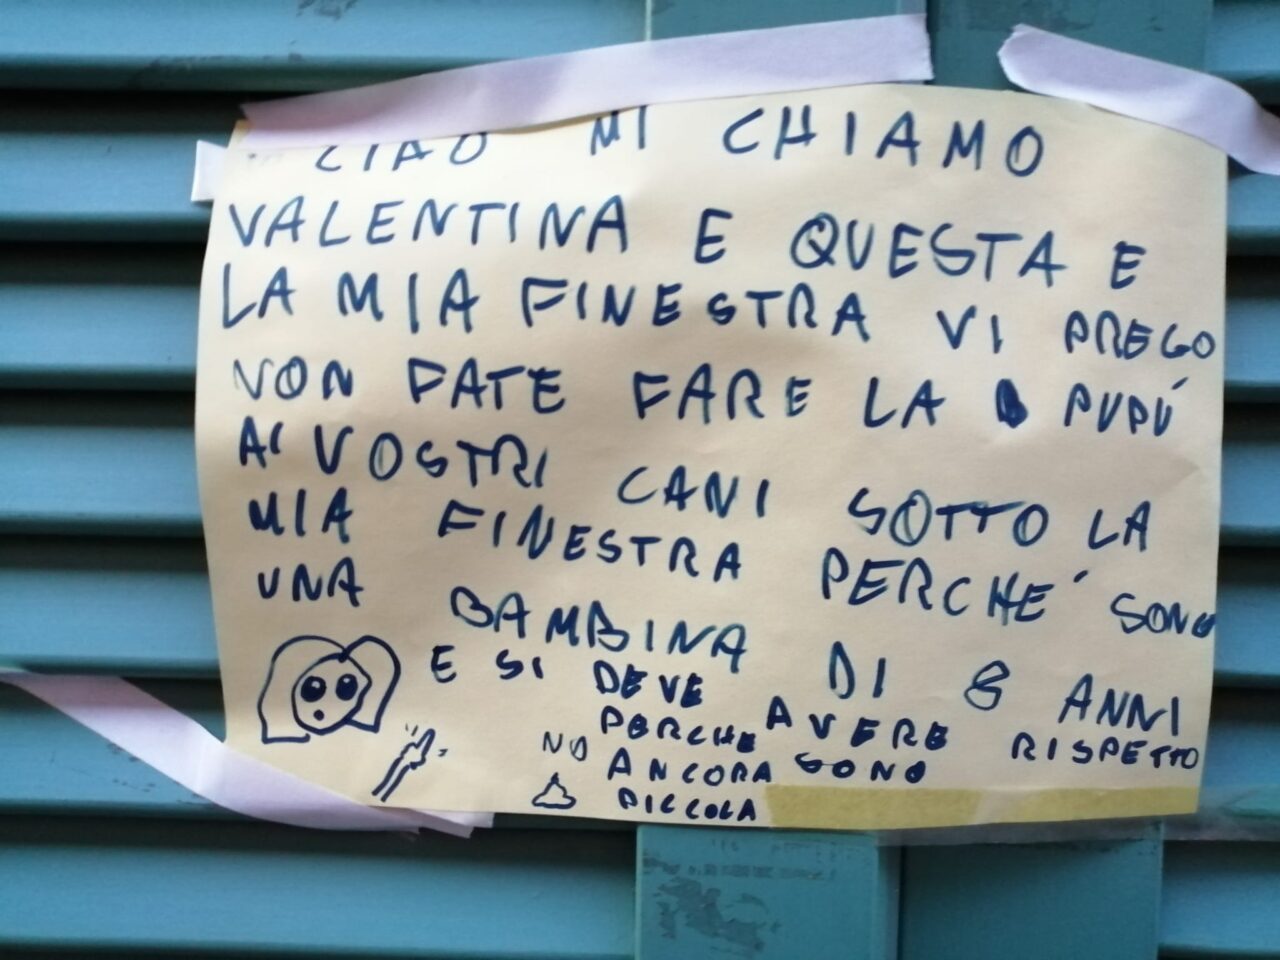 CIAO MI CHIAMO
VALENTINA E QUESTA E
LA MIA FINESTRA VI PREGO
NON FATE FARE LA PUPÚ
AI VOSTRI CANI SOTTO LA
MIA FINESTRA PERCHÉ SONO
UNA BAMBINA DI 8 ANNI
E SI DEVE AVERE RISPETTO
PERCHE SONO
ANCORA
PICCOLA
NO